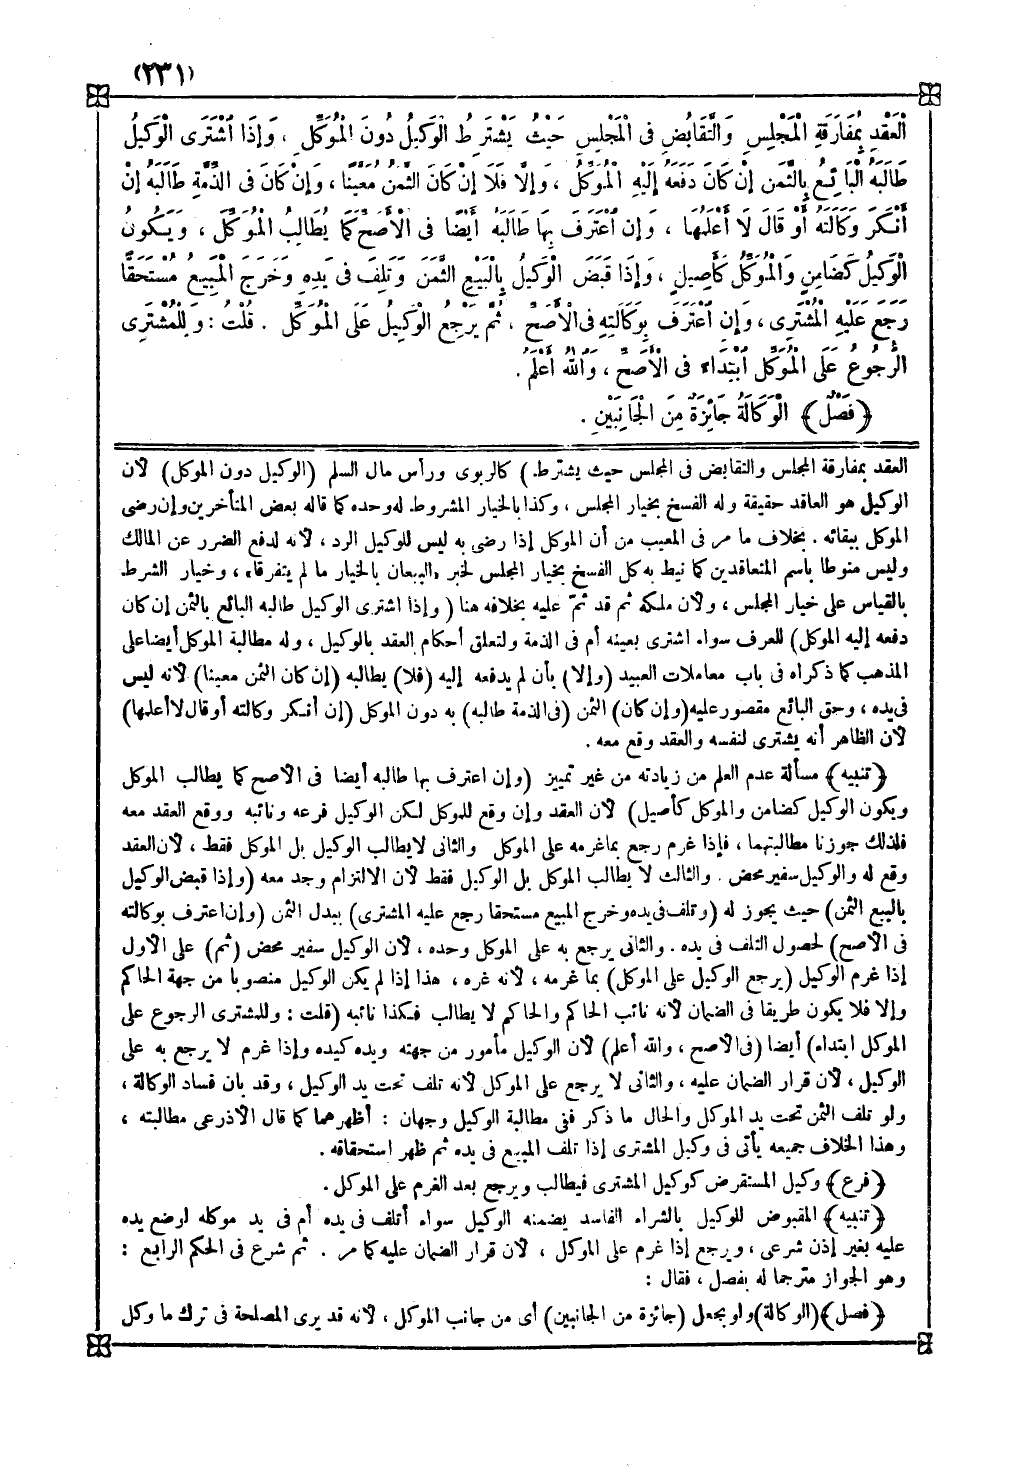 (٢٣١)
الْعَقْدِ بِمُفَارَقَةِ الْمَجْلِسِ وَالتَّقَابُضِ فِى الْمَجْلِسِ حَيْثُ يُشْتَرَطُ الْوَكِيلُ دُونَ الْمُوَكِّلِ ، وَإِذَا اشْتَرَى الْوَكِيلُ
طَالَبَهُ الْبَائِعُ بِالثَّمَنِ إِنْ كَانَ دَفَعَهُ إِلَيْهِ الْمُوَكِّلُ ، وَإِلَّا فَلَا إِنْ كَانَ الثَّمَنُ مُعَيَّنًا ، وَإِنْ كَانَ فِى الذِّمَّةِ طَالَبَهُ إِنْ
أَنْكَرَ وَكَالَتَهُ أَوْ قَالَ لَا أَعْلَمُهَا ، وَإِنِ اعْتَرَفَ بِهَا طَالَبَهُ أَيْضًا فِى الْأَصَحِّ كَمَا يُطَالِبُ الْمُوَكِّلَ ، وَيَكُونُ
الْوَكِيلُ كَضَامِنٍ وَالْمُوَكِّلُ كَأَصِيلٍ ، وَإِذَا قَبَضَ الْوَكِيلُ بِالْبَيْعِ الثَّمَنَ وَتَلِفَ فِى يَدِهِ وَخَرَجَ الْمَبِيعُ مُسْتَحَقًّا
رَجَعَ عَلَيْهِ الْمُشْتَرِى ، وَإِنِ اعْتَرَفَ بِوَكَالَتِهِ فِى الْأَصَحِّ ، ثُمَّ يَرْجِعُ الْوَكِيلُ عَلَى الْمُوَكِّلِ . قُلْتُ : وَلِلْمُشْتَرِى
الرُّجُوعُ عَلَى الْمُوَكِّلِ ابْتِدَاءً فِى الْأَصَحِّ ، وَاللّٰهُ أَعْلَمُ .
﴿فَصْلٌ﴾ الْوَكَالَةُ جَائِزَةٌ مِنَ الْجَانِبَيْنِ .
العقد بمفارقة المجلس والتقابض فى المجلس حيث يشترط) كالربوى ورأس مال السلم (الوكيل دون الموكل) لأن
الوكيل هو العاقد حقيقة وله الفسخ بخيار المجلس ، وكذا بالخيار المشروط له وحده كما قاله بعض المتأخرين وإن رضى
الموكل ببقائه . بخلاف ما مر فى المعيب من أن الموكل إذا رضى به ليس للوكيل الرد ، لأنه لدفع الضرر عن المالك
وليس منوطا باسم المتعاقدين كما نيط به كل الفسخ بخيار المجلس لخبر «البيعان بالخيار ما لم يتفرقا» ، وخيار الشرط
بالقياس على خيار المجلس ، ولأن ملكه ثم قد تمّ عليه بخلافه هنا (وإذا اشترى الوكيل طالبه البائع بالثمن إن كان
دفعه إليه الموكل) للعرف سواء اشترى بعينه أم فى الذمة ولتعلق أحكام العقد بالوكيل ، وله مطالبة الموكل أيضا على
المذهب كما ذكراه فى باب معاملات العبيد (وإلا) بأن لم يدفعه إليه (فلا) يطالبه (إن كان الثمن معينا) لأنه ليس
فى يده ، وحق البائع مقصور عليه (وإن كان) الثمن (فى الذمة طالبه) به دون الموكل (إن أنكر وكالته أو قال لا أعلمها)
لأن الظاهر أنه يشترى لنفسه والعقد وقع معه .
﴿تنبيه﴾ مسألة عدم العلم من زيادته من غير تمييز (وإن اعترف بها طالبه أيضا فى الأصح كما يطالب الموكل
ويكون الوكيل كضامن والموكل كأصيل) لأن العقد وإن وقع للموكل لكن الوكيل فرعه ونائبه ووقع العقد معه
فلذلك جوزنا مطالبتهما ، فإذا غرم رجع بما غرمه على الموكل والثانى لا يطالب الوكيل بل الموكل فقط ، لأن العقد
وقع له والوكيل سفير محض . والثالث لا يطالب الموكل بل الوكيل فقط لأن الالتزام وجد معه (وإذا قبض الوكيل
بالبيع الثمن) حيث يجوز له (وتلف فى يده وخرج المبيع مستحقا رجع عليه المشترى) ببدل الثمن (وإن اعترف بوكالته
فى الأصح) لحصول التلف فى يده . والثانى يرجع به على الموكل وحده ، لأن الوكيل سفير محض (ثم) على الأول
إذا غرم الوكيل (يرجع الوكيل على الموكل) بما غرمه ، لأنه غره ، هذا إذا لم يكن الوكيل منصوبا من جهة الحاكم
وإلا فلا يكون طريقا فى الضمان لأنه نائب الحاكم والحاكم لا يطالب فكذا نائبه (قلت : وللمشترى الرجوع على
الموكل ابتداء) أيضا (فى الأصح ، والله أعلم) لأن الوكيل مأمور من جهته ويده كيده وإذا غرم لا يرجع به على
الوكيل ، لأن قرار الضمان عليه ، والثانى لا يرجع على الموكل لأنه تلف تحت يد الوكيل ، وقد بان فساد الوكالة ،
ولو تلف الثمن تحت يد الموكل والحال ما ذكر ففى مطالبة الوكيل وجهان : أظهرهما كما قال الأذرعى مطالبته ،
وهذا الخلاف جميعه يأتى فى وكيل المشترى إذا تلف المبيع فى يده ثم ظهر استحقاقه .
﴿فرع﴾ وكيل المستقرض كوكيل المشترى فيطالب ويرجع بعد الغرم على الموكل .
﴿تنبيه﴾ المقبوض للوكيل بالشراء الفاسد يضمنه الوكيل سواء أتلف فى يده أم فى يد موكله لوضع يده
عليه بغير إذن شرعى ، ويرجع إذا غرم على الموكل ، لأن قرار الضمان عليه كما مر . ثم شرع فى الحكم الرابع :
وهو الجواز مترجما له بفصل ، فقال :
﴿فصل﴾ (الوكالة) ولو بجعل (جائزة من الجانبين) أى من جانب الموكل ، لأنه قد يرى المصلحة فى ترك ما وكل